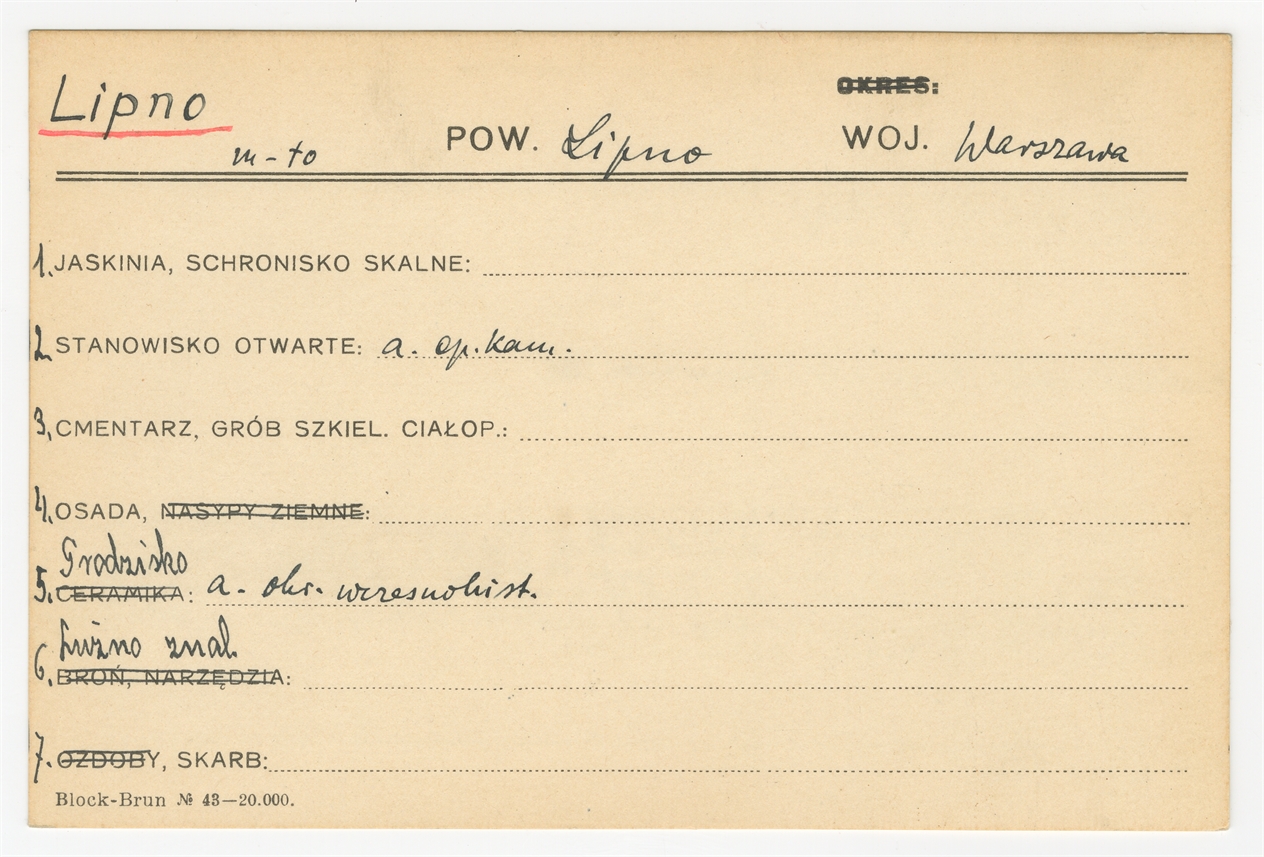 Lipno
OKRES:
m-to POW. Lipno WOJ. Warszawa
1. JASKINIA, SCHRONISKO SKALNE:
2. STANOWISKO OTWARTE: a. ep. kam.
3. CMENTARZ, GRÓB SZKIEL. CIAŁOP.:
4. OSADA, NASYPY ZIEMNE:
Grodzisko
5. CERAMIKA: a. okr. wczesnohist.
Luźno znal.
6. BROŃ, NARZĘDZIA:
7. OZDOBY, SKARB:
Block-Brun № 43—20.000.